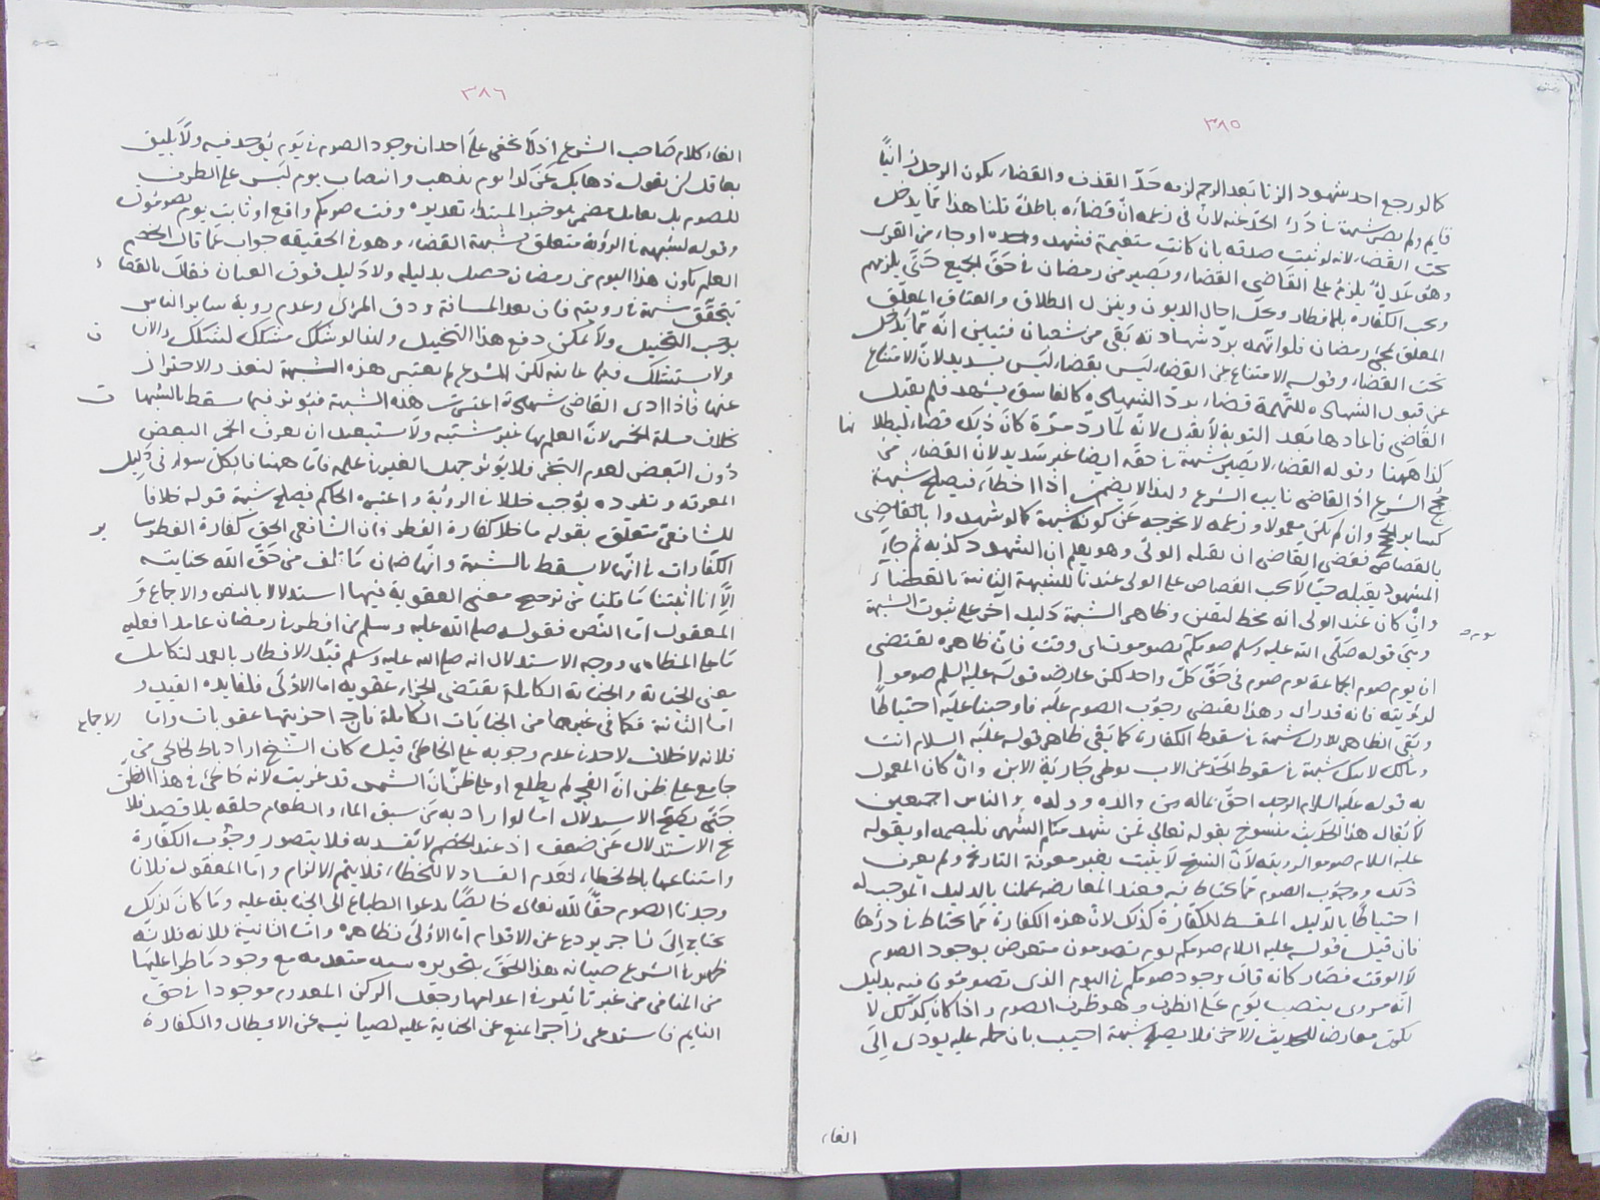 ٣٨٥
كما لو رجع احد شهود الزنا بعد الرجم لزمه حدّ القذف والقضاء بكون الرجل زانيًا
قايم ولم يصر شبهة في درء الحد عنه لان في زعمه ان قضاءه باطل قلنا هذا مما يدخل
تحت القضاء لانه لو ثبت صدقه بان كانت متغيمة فشهد وحده او جاء من القرى
وهو عدل يلزم على القاضي القضاء ويصير من رمضان في حق الجميع حتى يلزمهم
ويجب الكفارة بالافطار وتحل اجال الديون وينزل الطلاق والعتاق المعلق
المعلق بمجيء رمضان فلو اتهمه برد شهادته بقي من شعبان فتبين انه مما يدخل
تحت القضاء وقوله الامتناع عن القضاء ليس بقضاء ليس بسديد لان الامتناع
عن قبول الشهادة للتهمة قضاء برد الشهادة كالفاسق يشهد فلم يقبل
القاضي فاعادها بعد التوبة لا يقبل لانه لما رد مرة كان ذلك قضاء ليطلا نها
كذا ههنا وقوله القضاء لا يصير شبهة في حقه ايضا غير سديد لان القضاء من
حجج الشرع اذ القاضي نايب الشرع ولهذا لا يضمن اذا اخطأ فيصلح شبهة
كساير الحجج وان لم يكن معمولا وزعمه لا يخرجه عن كونه شبهة كما لو شهدوا بالقاضي
بالقصاص فقضى القاضي ان يقتله الولي وهو يعلم ان الشهود كذبة ثم جاء
المشهود بقتله حيًا لا يجب القصاص على الولي عندنا للشبهة الثانية بالقضاء
وان كان عند الولي انه مخطئ بيقين وظاهر الشبهة دليل اخر على ثبوت الشبهة
وهي قوله صلى الله عليه وسلم صومكم يوم تصومون اي وقت فان ظاهره يقتضي
ان يوم صوم الجماعة يوم صوم في حق كل واحد لكن عارضه قوله عليه السلم صوموا
لرؤيته فانه قد راى وهذا يقتضي وجوب الصوم عليه فاوجبنا عليه احتياطًا
وبقي الظاهر الاول شبهة في سقوط الكفارة كما بقي ظاهر قوله عليه السلام انت
ومالك لابيك شبهة في سقوط الحد عن الاب بوطي جارية الابن وان كان المعمول
به قوله عليه السلام الرجل احق بماله من والده وولده والناس اجمعين
لا يقال هذا الحديث منسوخ بقوله تعالى فمن شهد منكم الشهر فليصمه او بقوله
عليه السلام صوموا لرؤيته لان النسخ لا يثبت بغير معرفة التاريخ ولم يعرف
ذلك ووجوب الصوم مما يحتاط فيه فعند المعارضة عملنا بالدليل الموجب له
احتياطًا بالدليل المسقط للكفارة كذلك لان هذه الكفارة مما يحتاط في درءها
فان قيل قوله عليه السلام صومكم يوم تصومون متعرض بوجود الصوم
لا الوقت فصار كانه قال وجود صومكم في اليوم الذي تصومون فيه بدليل
انه مروي بنصب يوم على الظرف وهو ظرف الصوم واذا كان كذلك لا
يكون معارضا للحديث الاخر فلا يصلح شبهة اجيب بان حمله عليه يودي الى
الغاء
٣٨٦
الغاء كلام صاحب الشرع اذ لا يخفى على احد ان وجود الصوم في يوم يوجد فيه ولا يليق
بعاقل ان يقول ذهابك عند يوم تذهب وانتصاب يوم ليس على الظرف
للصوم بل بعامل مضمر هو خبر المبتداء تقديره وقت صومكم واقع او ثابت يوم تصومون
وقوله لشبهه في الرؤية متعلق بشبهة القضاء وهو في الحقيقه جواب عما قال الخصم
العلم بكون هذا اليوم من رمضان حصل بدليله ولا دليل فوق العيان فقال بالقضاء
تتحقق شبهة في رويته فان بعد المسافة ودقة المرئي وعدم روية ساير الناس
يوجب التخييل ولا يمكن دفع هذا التخييل ولهذا لو شكك مشكك لتشكك والان
ولا يتشكك فيما عاينه لكن الشرع لم يعتبر هذه الشبهة لتعذر الاحتراز
عنها فاذا ادى القاضي شهادة اعتبرت هذه الشبهة فيوثر فيما يسقط بالشبهات
بخلاف مسلة الخمر لان العلم بها غير مشتبه ولا يستبعد ان يعرف الخمر البعض
دون البعض لعدم التبحر فلا يوثر جهل الغير في علمه فاما ههنا فالكل سواء في دليل
المعرفة وتفرده يوجب خللا في الرؤية واعتبره الحاكم فيصلح شبهة قوله خلافًا
للشافعي متعلق بقوله ما خلا كفارة الفطر فان الشافعي الحق كفارة الفطر بسا ير
الكفارات في انها لا يسقط بالشبهة وانها ضمان ما تلف من حق الله بجنايته
الا انا اثبتنا ما قلنا من ترجيح معنى العقوبة فيها استدلالا بالنص والاجماع و
المعقول اما النص فقوله صلى الله عليه وسلم من افطر في رمضان عامدا فعليه
ما على المظاهر ووجه الاستدلال انه صلى الله عليه وسلم قيد الافطار بالعمد لتكامل
معنى الجناية والجناية الكاملة تقتضي الجزاء عقوبة اما الاولى فلفايده القيد و
اما الثانية فكما في غيرها من الجنايات الكاملة فان اجزيتها عقوبات واما الاجماع
فلانه لا خلاف لاحد في عدم وجوبه على الخاطئ قيل كان الشيخ اراد بالخاطئ من
جامع على ظن ان الفجر لم يطلع او على ظن ان الشمس قد غربت لانه خاطئ في هذا الظن
حتى يصح الاستدلال اما لو اراد به من سبق الماء والطعام حلقه بلا قصد فلا
يصح الاستدلال عن ضعف اذ عند الخصم لا يفسد به فلا يتصور وجوب الكفارة
وامتناعها بالخطاء لعدم الفساد لا للخطاء فلا يتم الالزام واما المعقول فلانا
وجدنا الصوم حقًا لله تعالى خالصًا تدعوا الطباع الى الجناية عليه وما كان كذلك
يحتاج الى زاجر يردع عن الاقدام اما الاولى فظاهره واما الثانية فلانه
ظهر في الشرع صيانة هذا الحق مع وجود ما طرأ عليها
من المنافي من غير تاثير في اعدامها وجعل الركن المعدوم موجودا في حق
النايم فاستدعى زاجرا يمنع عن الجناية عليه لصيانته عن الابطال والكفارة